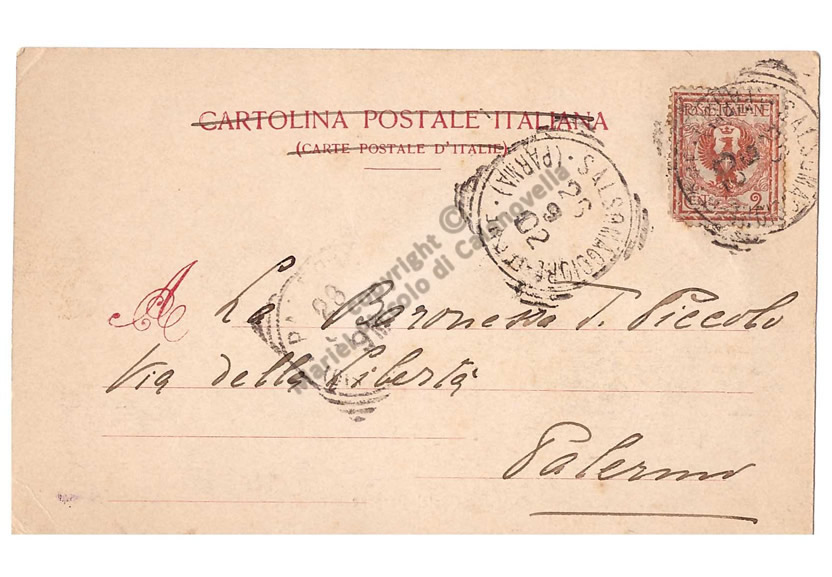 CARTOLINA POSTALE ITALIANA
(CARTE POSTALE D'ITALIE)
POSTE ITALIANE
2
SALSOMAGGIORE
(PARMA)
26
9
02
28
Copyright ©
Piccolo di Calanovella
A La Baronessa T. Piccolo
Via della Libertà
Palermo